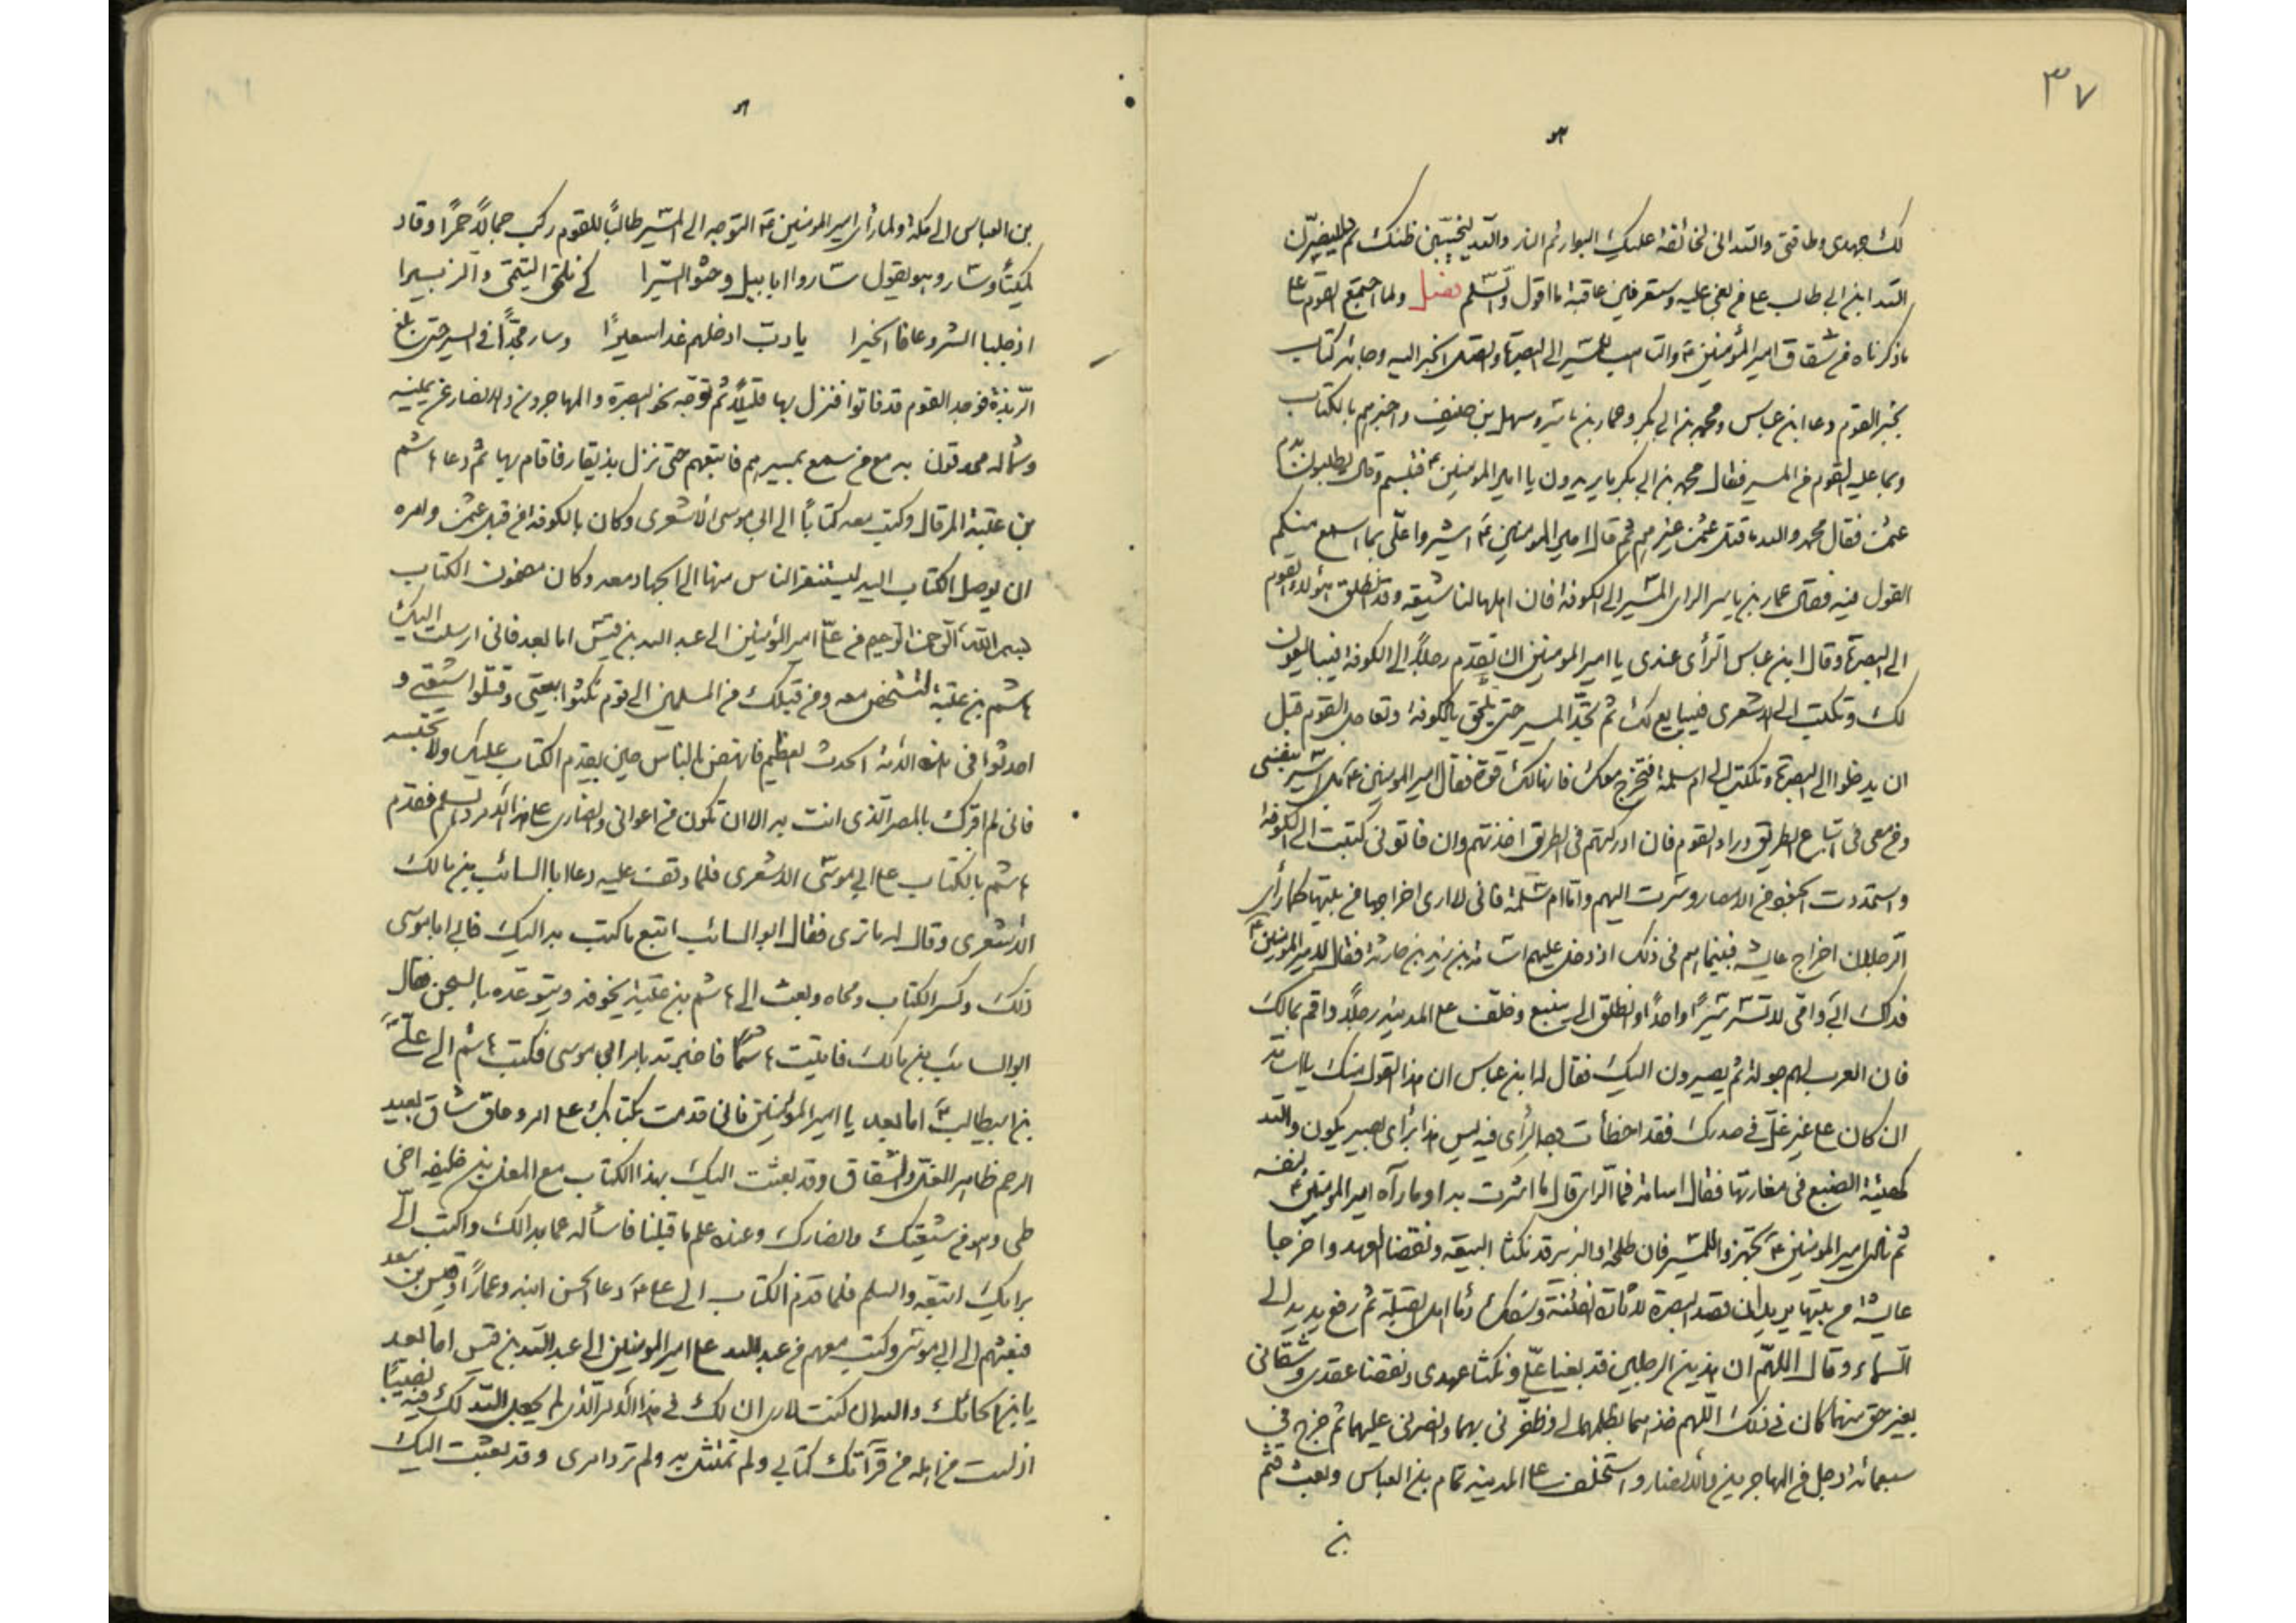 ٣٧
لك جهدى وطاقتى والله انى لخائفة عليك البوار ثم النار والله ليخيبن ظنك ثم لينصرن
الله ابن ابى طالب على من بغى عليه وستعرفين عاقبة ما اقول والسلم فصل ولما اجتمع القوم على
ما ذكرناه من شقاق امير المؤمنين ع والتاهب للمسير الى البصرة واتصل الخبر اليه وجائه كتاب
بخبر القوم دعا ابن عباس ومحمد بن ابى بكر وعمار بن ياسر وسهل بن حنيف واخبرهم بالكتاب
وبما عليه القوم من المسير فقال محمد بن ابى بكر ما يريدون يا امير المومنين ع فتبسم وقال يطلبون بدم
عثمن فقال محمد والله ما قتل عثمن غيرهم ثم قال امير المومنين ع اشيروا على بما اسمع منكم
القول فيه فقال عمار بن ياسر الراى المسير الى الكوفة فان اهلها لنا شيعة وقد انطلق هؤلاء القوم
الى البصرة وقال ابن عباس الرأى عندى يا امير المومنين ان تقدم رجلاً الى الكوفة فيبايعون
لك وتكتب الى الاشعرى فيبايع لك ثم تجد المسير حتى تلحق بالكوفة وتعاجل القوم قبل
ان يدخلوا الى البصرة وتكتب الى ام سلمة فتخرج معك فانها لك قوة فقال امير المومنين ع بل اسير بنفسى
ومن معى فى اتباع الطريق وراء القوم فان ادركتهم فى الطريق اخذتهم وان فاتونى كتبت الى الكوفة
واستمددت الجنود من الامصار وسرت اليهم واما ام سلمة فانى لا ارى اخراجها من بيتها كما رأى
الرجلان اخراج عايشه فبينما هم فى ذلك اذ دخل عليهم اسامة بن زيد بن حارثة فقال لامير المومنين ع
فداك ابى وامى لا تسر سيراً واحداً وانطلق الى ينبع وخلف على المدينه رجلاً واقم بمالك
فان العرب لهم جولة ثم يصيرون اليك فقال له ابن عباس ان هذا القول منك يا اسامه
ان كان على غير غل فى صدرك فقد اخطأت وجه الرأى فيه ليس هذا برأى بصير يكون والله
كهيئة الضبع فى مغارتها فقال اسامة فما الراى قال ما اشرت به او ما رآه امير المومنين ع لنفسه
ثم نادى امير المومنين ع تجهزوا للمسير فان طلحة والزبير قد نكثا البيعه ونقضا العهد واخرجا
عايشه من بيتها يريدان قصد البصرة لاثارة الفتنة وسفك دماء اهل القبلة ثم رفع يديه الى
السماء وقال اللهم ان هذين الرجلين قد بغيا على ونكثا عهدى ونقضا عقدى وشقانى
بغير حق منهما كان فى ذلك اللهم خذهما بظلمهما لى وظفرنى بهما وانصرنى عليهما ثم خرج فى
سبعمائة رجل من المهاجرين والانصار واستخلف على المدينه تمام بن العباس وبعث قثم
بن
بن العباس الى مكة ولما رأى امير المومنين ع التوجه الى المسير طالباً للقوم ركب جملاً احمراً وقاد
كميتاً وسار وهو يقول سيروا ابابيل وحثوا السيرا كى نلحق التيمى والزبيرا
اذ جلبا الشر وعافا الخيرا يا رب ادخلهم غدا سعيرًا وسار مجداً فى السير حتى بلغ
الربذة فوجد القوم قد فاتوا فنزل بها قليلاً ثم توجه نحو البصرة والمهاجرون والانصار عن يمينه
وشماله محدقون به مع من سمع بمسيرهم فاتبعهم حتى نزل بذيقار فاقام بها ثم دعا هاشم
بن عتبة المرقال وكتب معه كتاباً الى ابى موسى الاشعرى وكان بالكوفة من قبل عثمن وامره
ان يوصل الكتاب اليه ليستنفر الناس منها الى الجهاد معه وكان مضمون الكتاب
بسم الله الرحمن الرحيم من على امير المؤمنين الى عبد الله بن قيس اما بعد فانى ارسلت اليك
هاشم بن عتبة لتشخص معه ومن قبلك من المسلمين الى قوم نكثوا بيعتى وقتلوا شيعتى و
احدثوا فى هذه الامة الحدث العظيم فانهض بالناس حين يقدم الكتاب عليك ولا تحبسه
فانى لم اقرك بالمصر الذى انت به الا ان تكون من اعوانى وانصارى على هذا الامر والسلم فقدم
هاشم بالكتاب على ابى موسى الاشعرى فلما وقف عليه دعا ابا السائب بن مالك
الاشعرى وقال له ما ترى فقال ابو السائب اتبع ما كتب به اليك فابى ابا موسى
ذلك وكسر الكتاب ومحاه وبعث الى هاشم بن عتبة يخوفه ويتوعده بالسجن فقال
ابو السائب بن مالك فاتيت هاشمًا فاخبرته بامر ابى موسى فكتب هاشم الى على
بن ابيطالب ع اما بعد يا امير المؤمنين فانى قدمت بكتابك على امرء عاق شاق بعيد
الرحم ظاهر الغل والشقاق وقد بعثت اليك بهذا الكتاب مع المحل بن خليفه اخى
طى وهو من شيعتك وانصارك وعنده علم ما قبلنا فاسأله عما بدا لك واكتب الى
برايك اتبعه والسلم فلما قدم الكتاب الى على ع دعا الحسن ابنه وعماراً وقيس بن سعد
فبعثهم الى ابى موسى وكتب معهم من عبد الله على امير المومنين الى عبد الله بن قيس اما بعد
يا بن الحائك والله ان كنت لارى ان لك فى هذا الامر الذى لم يجعل الله لك فيه نصيبًا
اذ لست من اهله من قرآتك كتابى ولم تمتثل به ولم ترد امرى وقد بعثت اليك